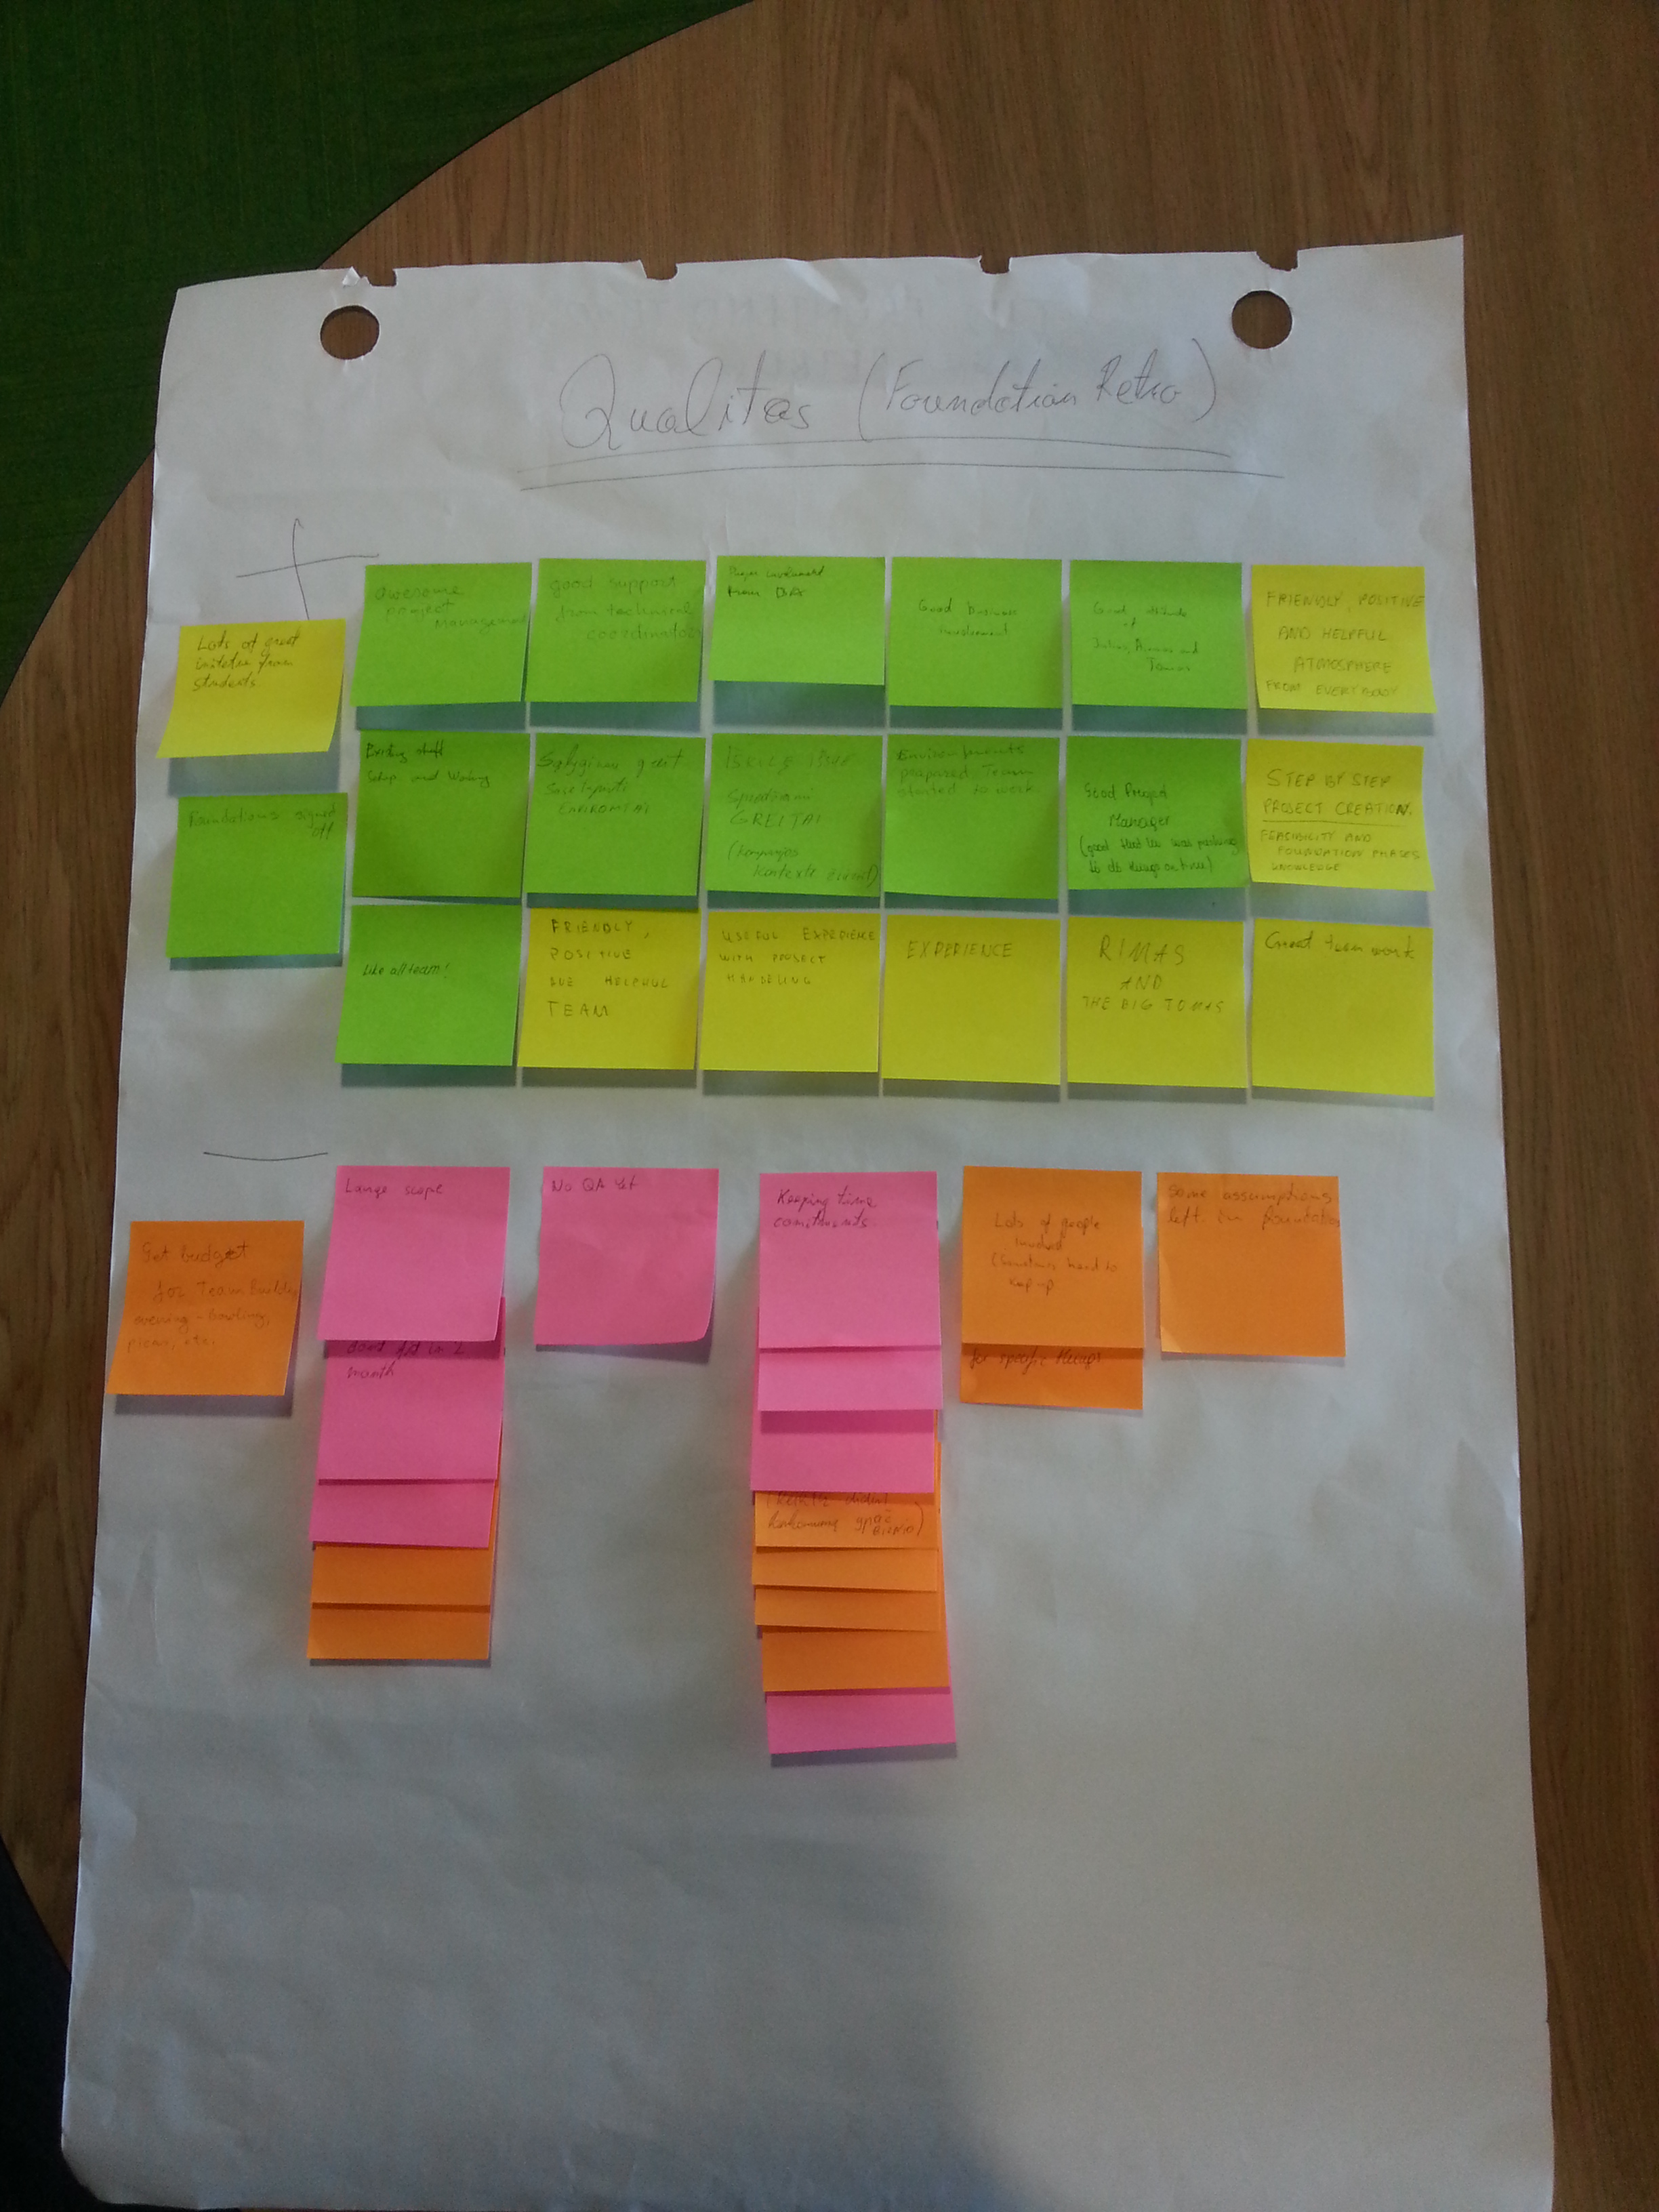 Qualitas (Foundation Retro)
+
Lots of great
from
students
awesome
project
management
good support
from technical
coordination
from
Good business
involvement
Good attitude
of
and
FRIENDLY, POSITIVE
AND HELPFUL
ATMOSPHERE
FROM EVERYBODY
Foundations signed
off
Existing stuff
Setup and Working
Sąlyginai
Environments
prepared Team
started to work
GREITAI
Good Project
Manager
(good that he was pushing
to do things on time)
STEP BY STEP
PROJECT CREATION.
FEASIBILITY AND
FOUNDATION PHASES
KNOWLEDGE
Like all team!
FRIENDLY,
POSITIVE
AND HELPFUL
TEAM
USEFUL EXPERIENCE
WITH PROJECT
HANDELING
EXPERIENCE
RIMAS
AND
THE BIG TOMAS
Great team work
—
Get budget
for Team Building
evening - bowling,
picnic, etc.
Large scope
month
No QA yet
Keeping time
comitments.
Lots of people
involved
(Sometimes hard to
keep up
for specific things
Some assumptions
left in foundation